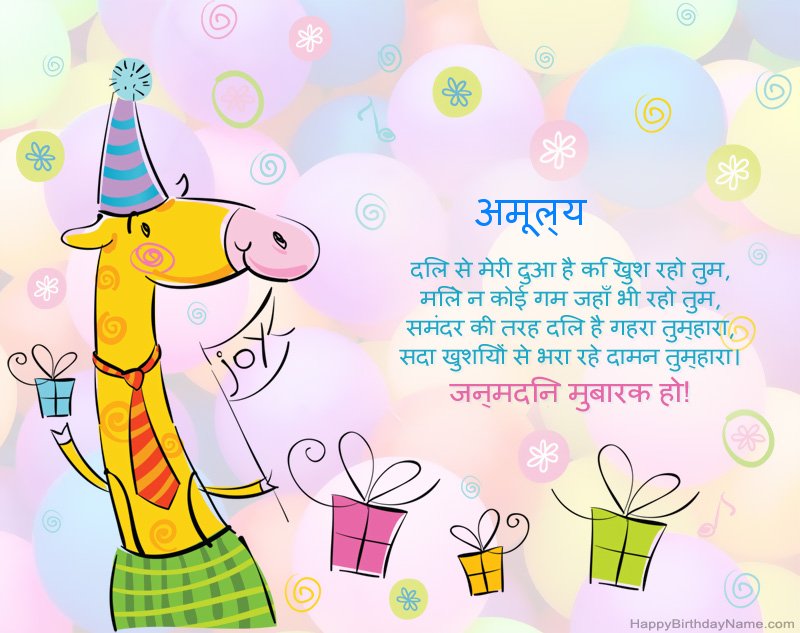 अमूल्य
joy
दिल से मेरी दुआ है कि खुश रहो तुम,
मिले न कोई गम जहाँ भी रहो तुम,
समंदर की तरह दिल है गहरा तुम्हारा,
सदा खुशियों से भरा रहे दामन तुम्हारा।
जन्मदिन मुबारक हो!
HappyBirthdayName.com